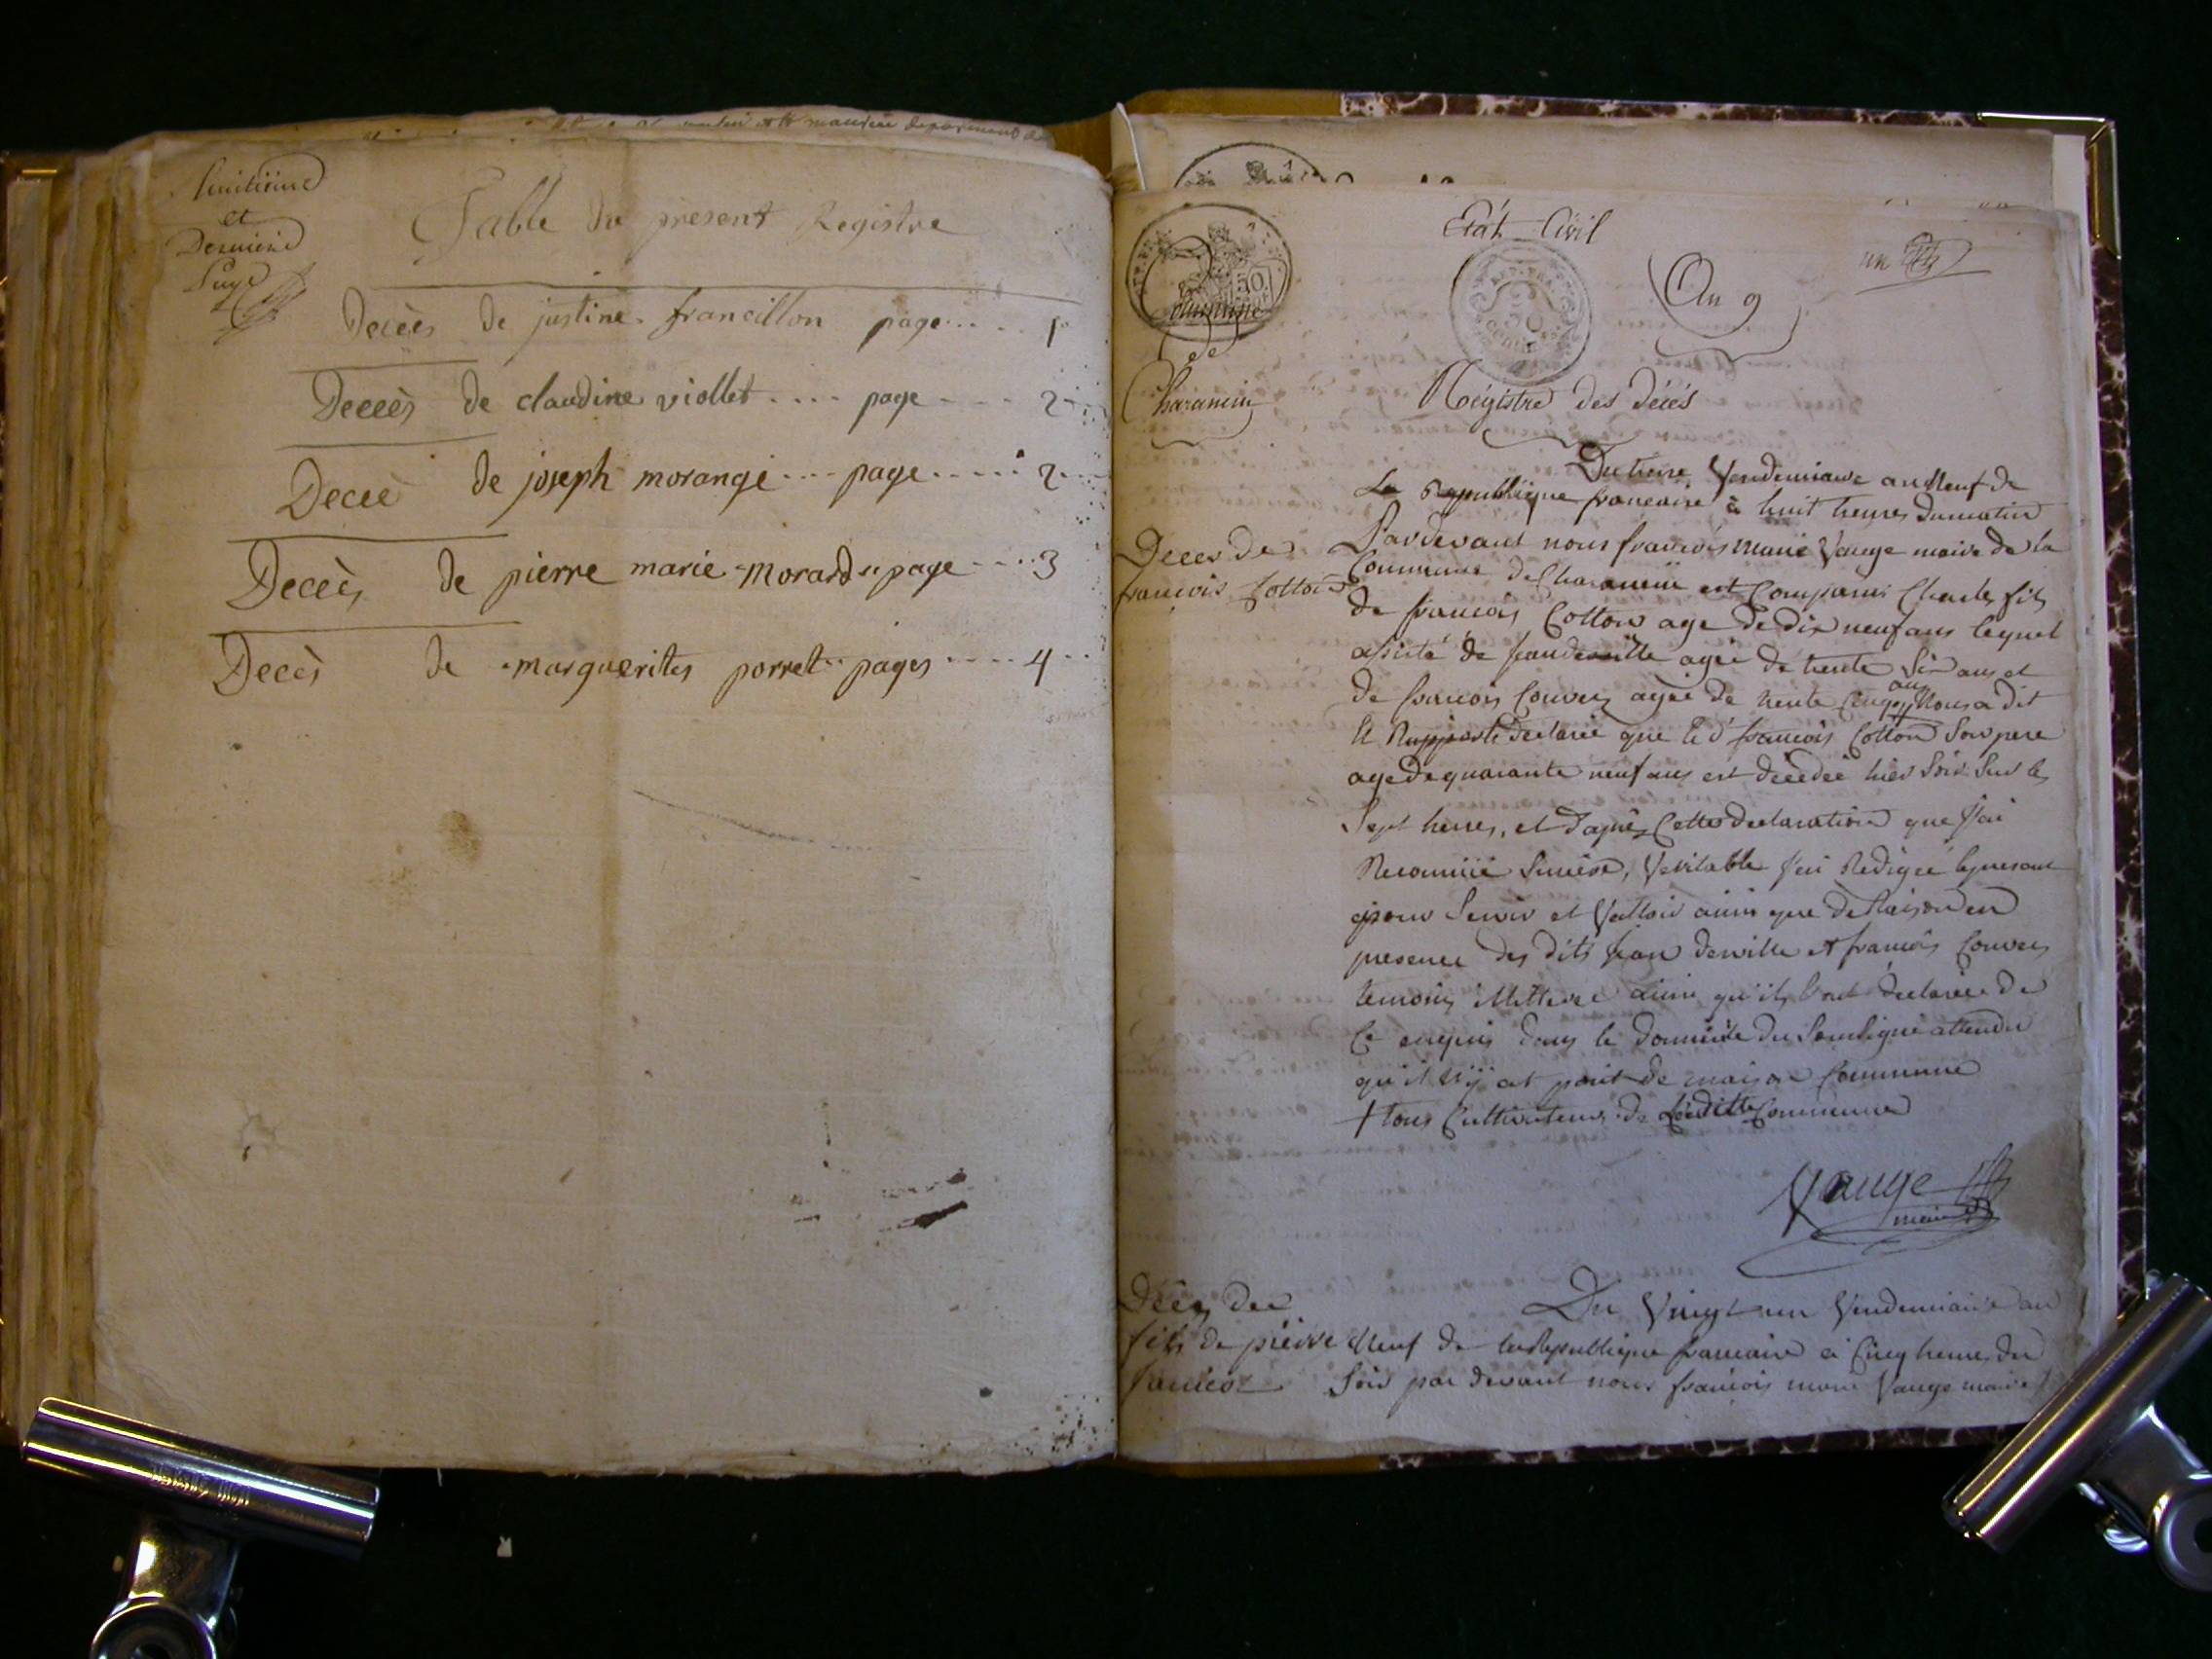 huitieme
et
Derniere
Page
Table du present Registre
Decès de justine francillon page .... 1
Decès de claudine viollet .... page .... 2
Decè de joseph morange .... page .... 2
Decès de pierre marie morard page .... 3
Decès de marguerites porret pages .... 4
Etat Civil
un
An 9
Commune
de
Charancin
Régistre des décés
Du treize Vendemiaire an Neuf de
La Republique francaise à huit heures du matin
Deces de
francois Cotton
Pardevant nous francois marie Vauge maire de la
Commune de Charancin est Comparus Charles fils
de francois Cotton age de dix neuf ans lequel
assisté de Jean derville agée de trente Six ans et
de francois Convers agée de trente Cinq ans ╪ Nous a dit
Et Rapporté declarée que le d francois Cotton Son pere
age de quarante neuf ans est décédée hier Soir Sur les
Sept heures, et d'après Cette declaration que j'ai
Reconnüe Sincere, Veritable j'ai Redigée le present
pour Servir et Valloir ainsi que de Raison en
presence des dits jean derville et francois Convers
temoins illitteré ainsi qu'ils l'ont declarée de
Ce enquis dans le Domicile du Soussigné attendu
qu'il N'ÿ at point de maison Commune
╪ tous Cultivateurs de Laditte Commune
Vauge
maire
Décès de
fils de pierre
Du Vingt un Vendemiaire an
Neuf de la Republique francaise à Cinq heures du
Soir par devant nous francois marie Vauge maire